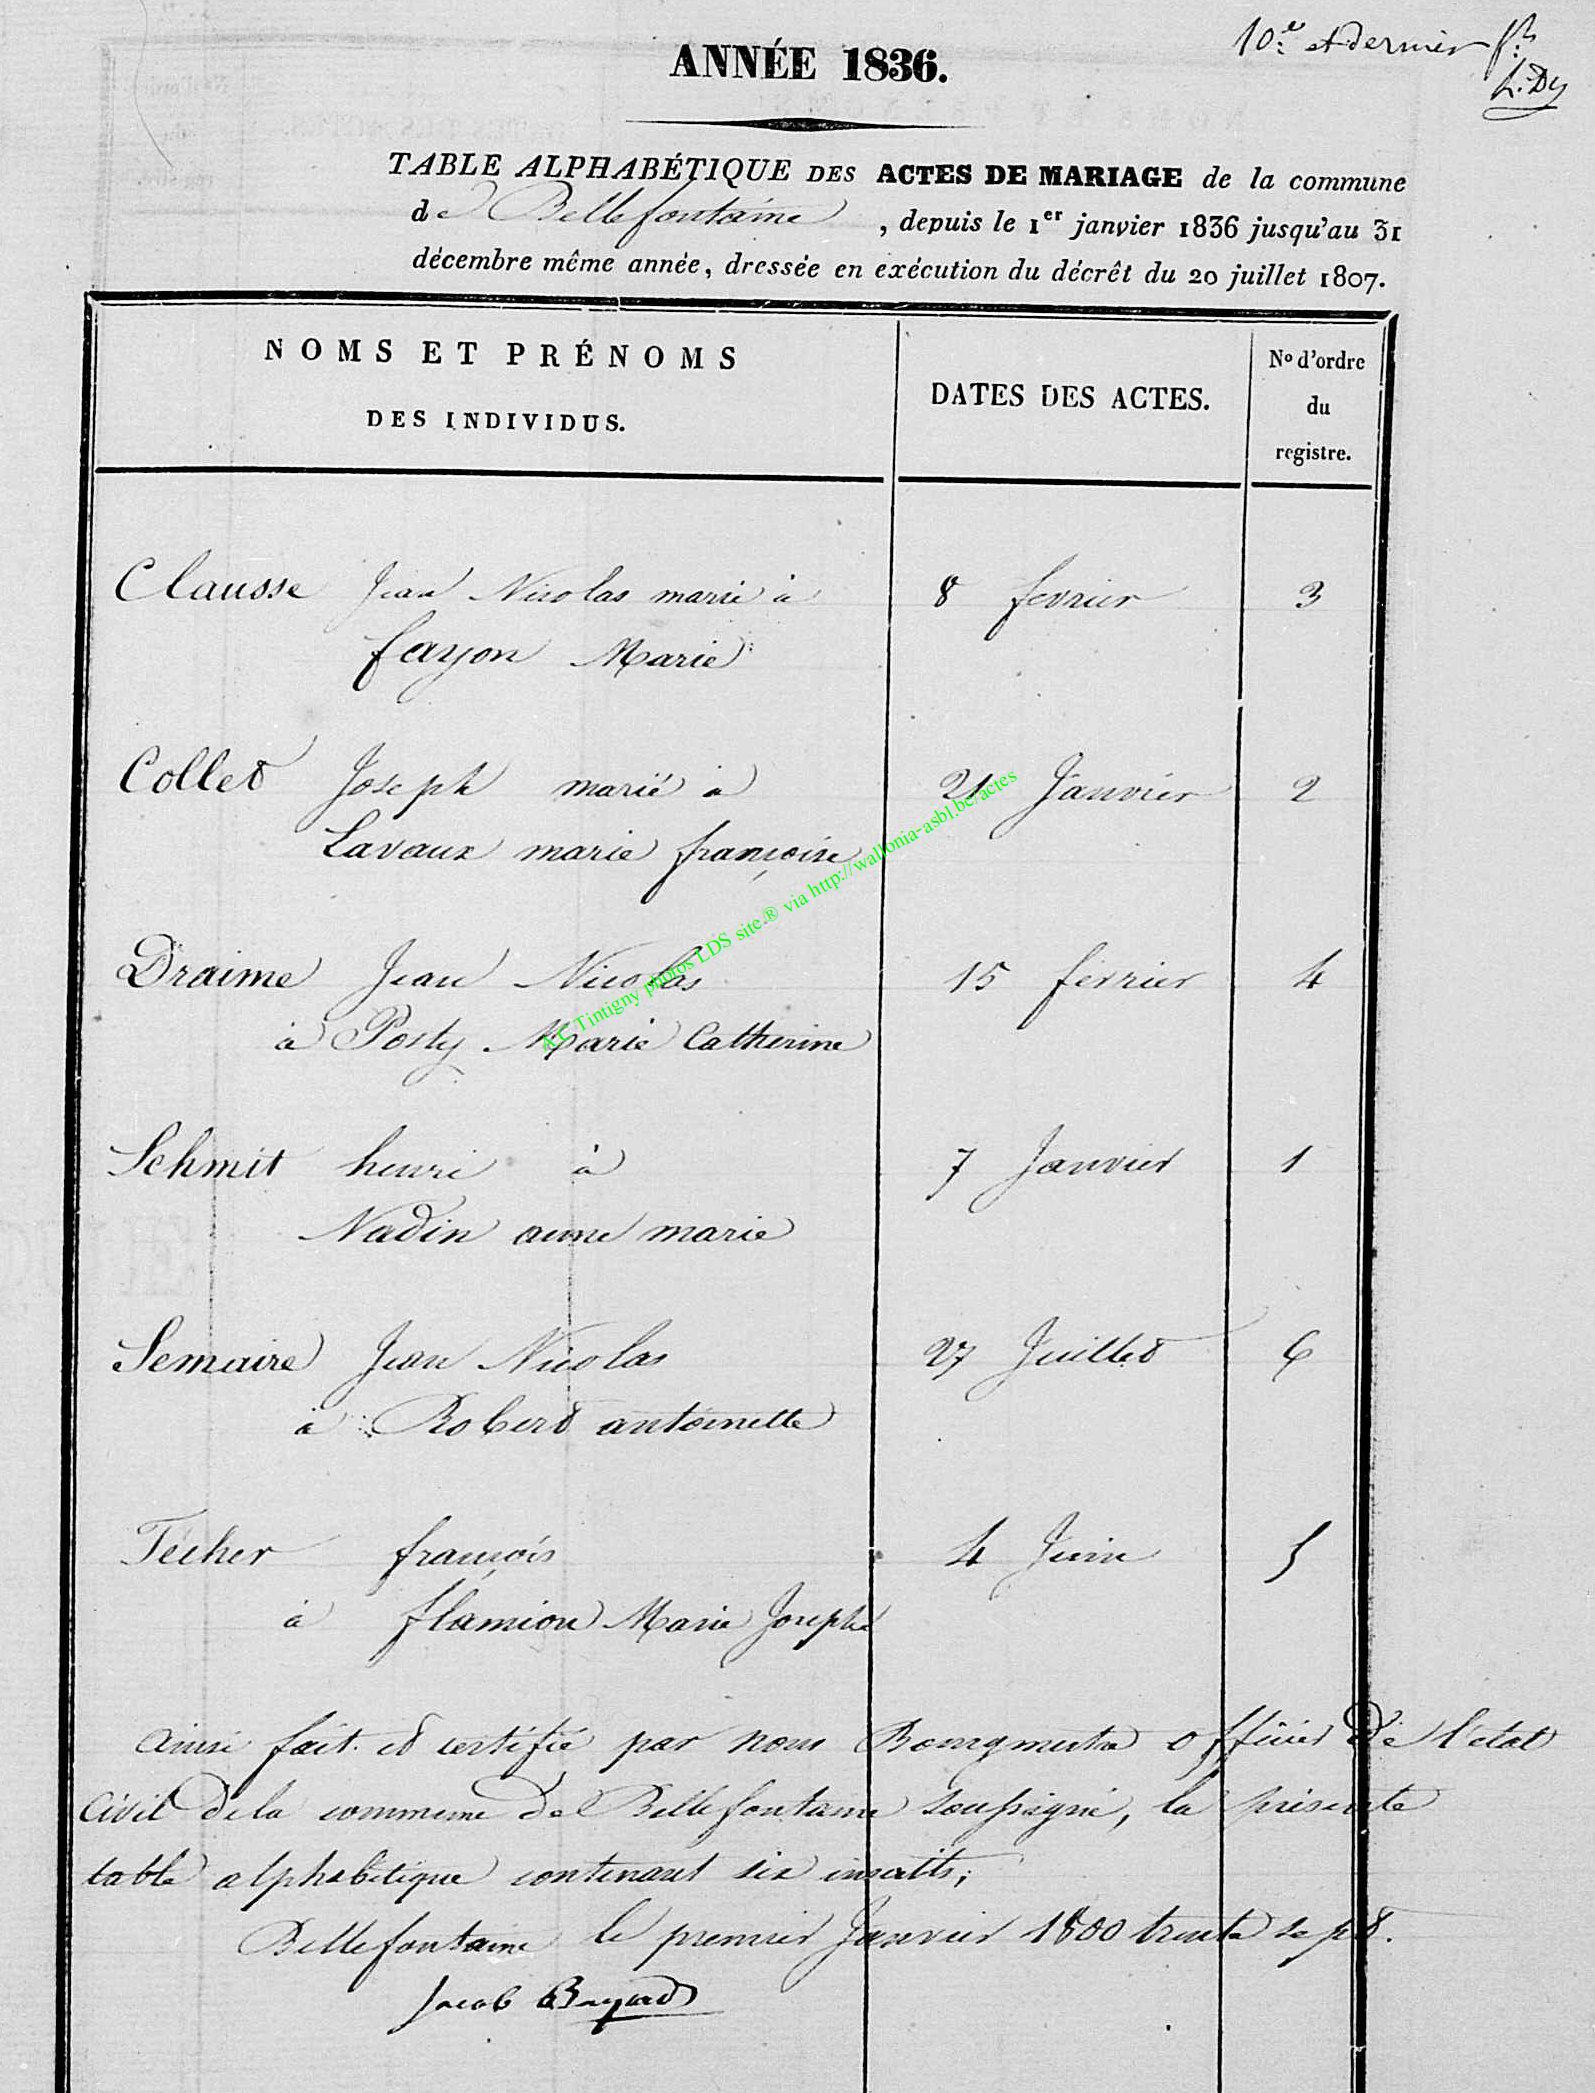 10e et dernier ft
ANNÉE 1836.
TABLE ALPHABÉTIQUE DES ACTES DE MARIAGE de la commune
de Bellefontaine, depuis le 1er janvier 1836 jusqu'au 31
décembre même année, dressée en exécution du décrêt du 20 juillet 1807.
NOMS ET PRÉNOMS
DES INDIVIDUS.
DATES DES ACTES.
No d'ordre
du
registre.
Clausse Jean Nicolas marié à 8 fevrier 3
fayon Marie
Collet Joseph marié à 21 Janvier 2
Lavaux marie françoise
Draime Jean Nicolas 15 février 4
à Posty Marie Catherine
Schmit henri à 7 Janvier 1
Nadin anne marie
Semaire Jean Nicolas 27 Juillet 6
à Robert antoinette
Técher françois 4 Juin 5
à flamion Marie Josephe
ainsi fait et certifié par nous Bourgmestre officier de l'état
civil de la commune de Bellefontaine soussigné, la présente
table alphabétique contenant six inscrits;
Bellefontaine le premier Janvier 1800 trente sept.
Jacob
AC Tintigny photos LDS site.® via http://wallonia-asbl.be/actes